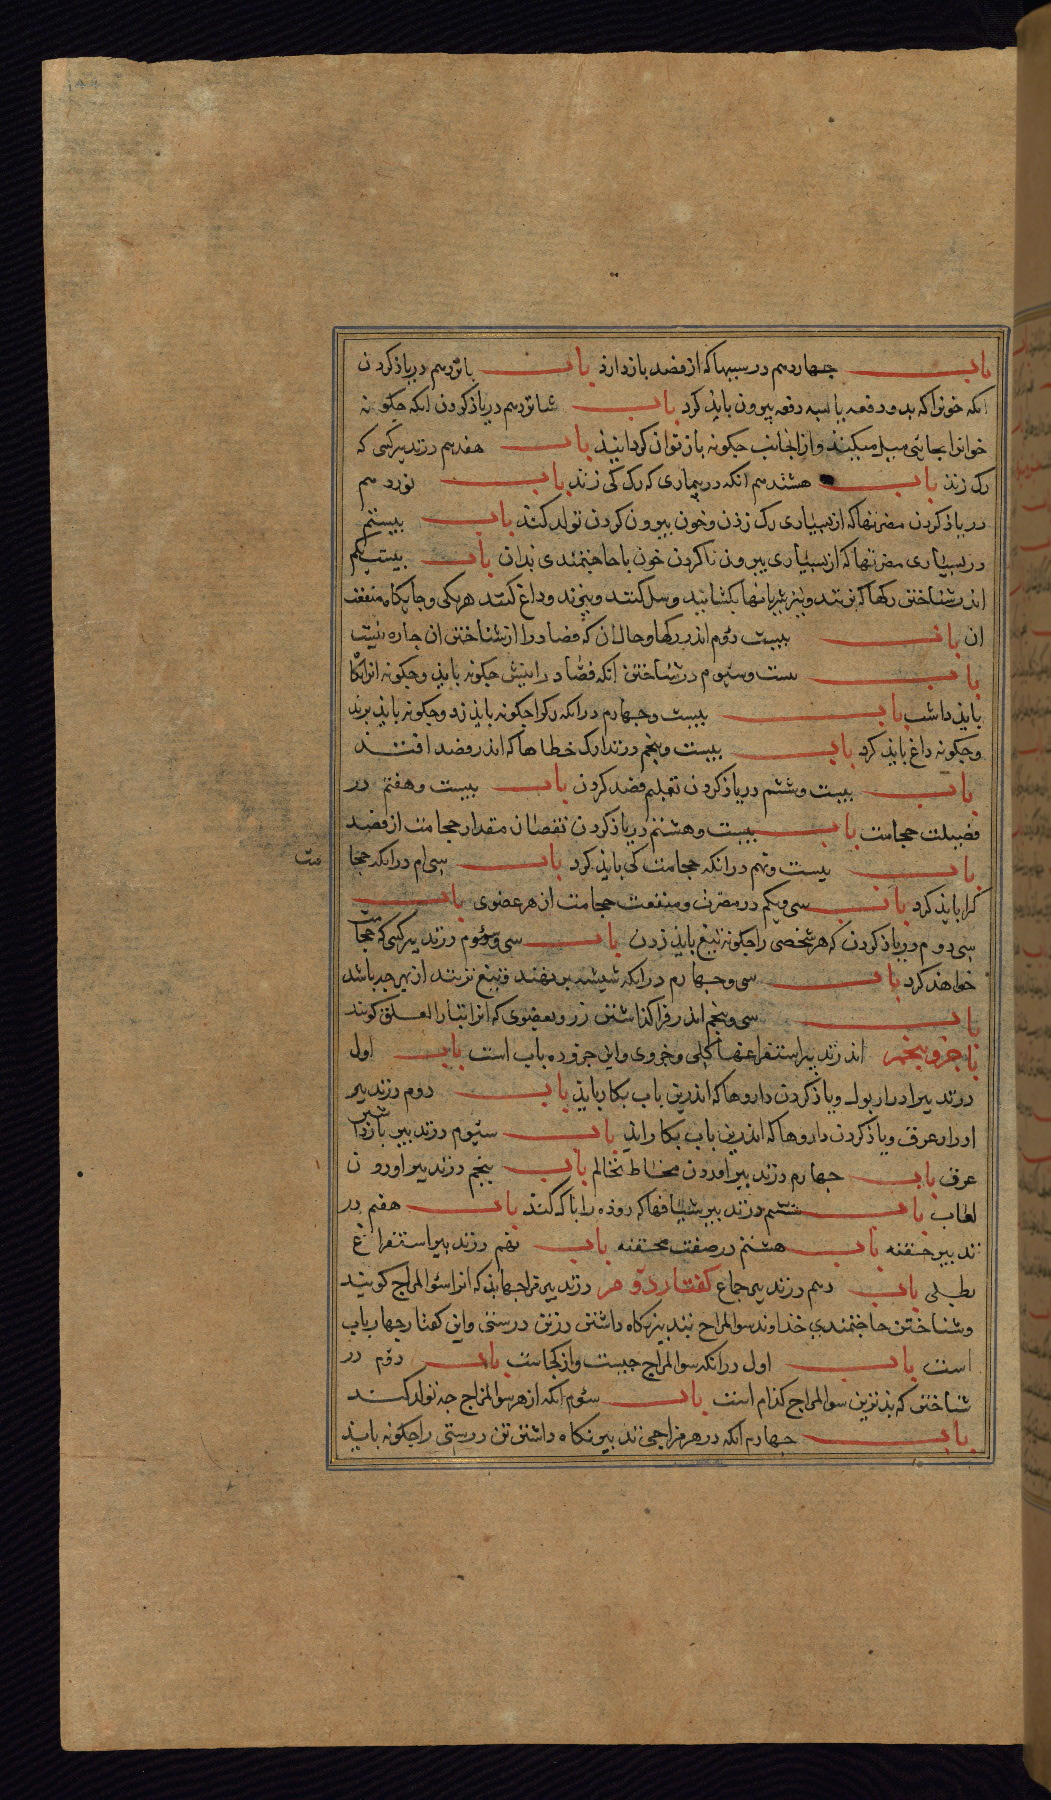 باب چهاردهم در سببها که از فصد بازدارد باب پانزدهم در یاذ کردن
انکه خونرا که بدو دفعه یا بسه دفعه بیرون بایذ کرد باب شانزدهم در یاذ کردن انکه چکونه
خوانرا بجائی میل میکیند و از انجانب چکونه باز توان کردانیذ باب هفدهم در تدبیر کسی که
رک زند باب هشتدهم انکه در بیماری که رک کی زند باب نوزدهم
در یاذ کردن مضرتها که از بسیاری رک زذن و خون بیرون کردن تولد کند باب بیستم
در بسیاری مضرتها که از بسیاری بیرون ناکردن خون با حاجتمندی بدان باب بیست یکم
اندر شناختن رکها که بزنند و نیز شریانها بکشایند و سل کنند و ببرند و داغ کنند هریکی و جایکاه منفعت
ان باب بیست دوم اندر رکها و حال ان که فصاد را از شناختن ان چاره نیست
باب بیست و سیوم در شناختن انکه فصّاد را نیش چکونه بایذ و چکونه انرا نکا
بایذ داشت باب بیست و چهارم در انکه رک را چکونه بایذ زد و چکونه بایذ برید
و چکونه داغ بایذ کرد باب بیست و پنجم در تدارک خطاها که اندر فصد افتد
باب بیست و ششم در یاذ کردن تعلیم فصد کردن باب بیست و هفتم در
فضیلت حجامت باب بیست و هشتم در یاذ کردن نقصان مقدار حجامت از فصد
باب بیست و نهم در انکه حجامت کی بایذ کرد باب سی ام در انکه حجا
مت
کرا بایذ کرد باب سی و یکم در مضرت و منفعت حجامت از هر عضوی باب
سی دوم در یاذ کردن که هر شخصی را چکونه تیغ بایذ زدن باب سی و سوم در تدبیر کسی که حجامت
خواهذ کرد باب سی و چهارم در انکه شیشه بر نهند و تیغ نزنند از بهر چه باشد
باب سی و پنجم اندر فرا کذاشتن زرو بعضوی که انرا بتازا العلق کویند
باب جزو پنجم اندر تدبیر استفراغها کلی و جزوی و این جزو ده باب است باب اول
در تدبیر ادرار بول و یاذ کردن داروها که اندرین باب بکار بایذ باب دوم در تدبیر
ادرار عرق و یاذ کردن داروها که اندرین باب بکار ایذ باب سیوم در تدبیر باز داشتن
عرق باب چهارم در تدبیر اوردن مخاط بحالم باب پنجم در تدبیر اوردن
لعاب باب ششم در تدبیر شیافها که روده را پاک کند باب هفتم در
تدبیر حقنه باب هشتم در صفت محقنه باب نهم در تدبیر استفراغ
بطلی باب دهم در تدبیر جماع کفتار دوم در تدبیر مزاجها بذ که انرا سؤالمزاج کویند
و شناختن حاجتمندی خداوند سوالمزاج بتدبیر نکاه داشتن در تن درستی و این کفتار چهار باب
است باب اول در انکه سوالمزاج چیست و از کجاست باب دوم در
شناختن که بذترین سوالمزاج کذام است باب سئوم انکه از هر سوالمزاج چه تولد کند
باب چهارم انکه در هر مزاجی تدبیر نکاه داشتن تن درستی را چکونه بایذ